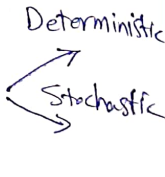 Deterministic
Stochastic